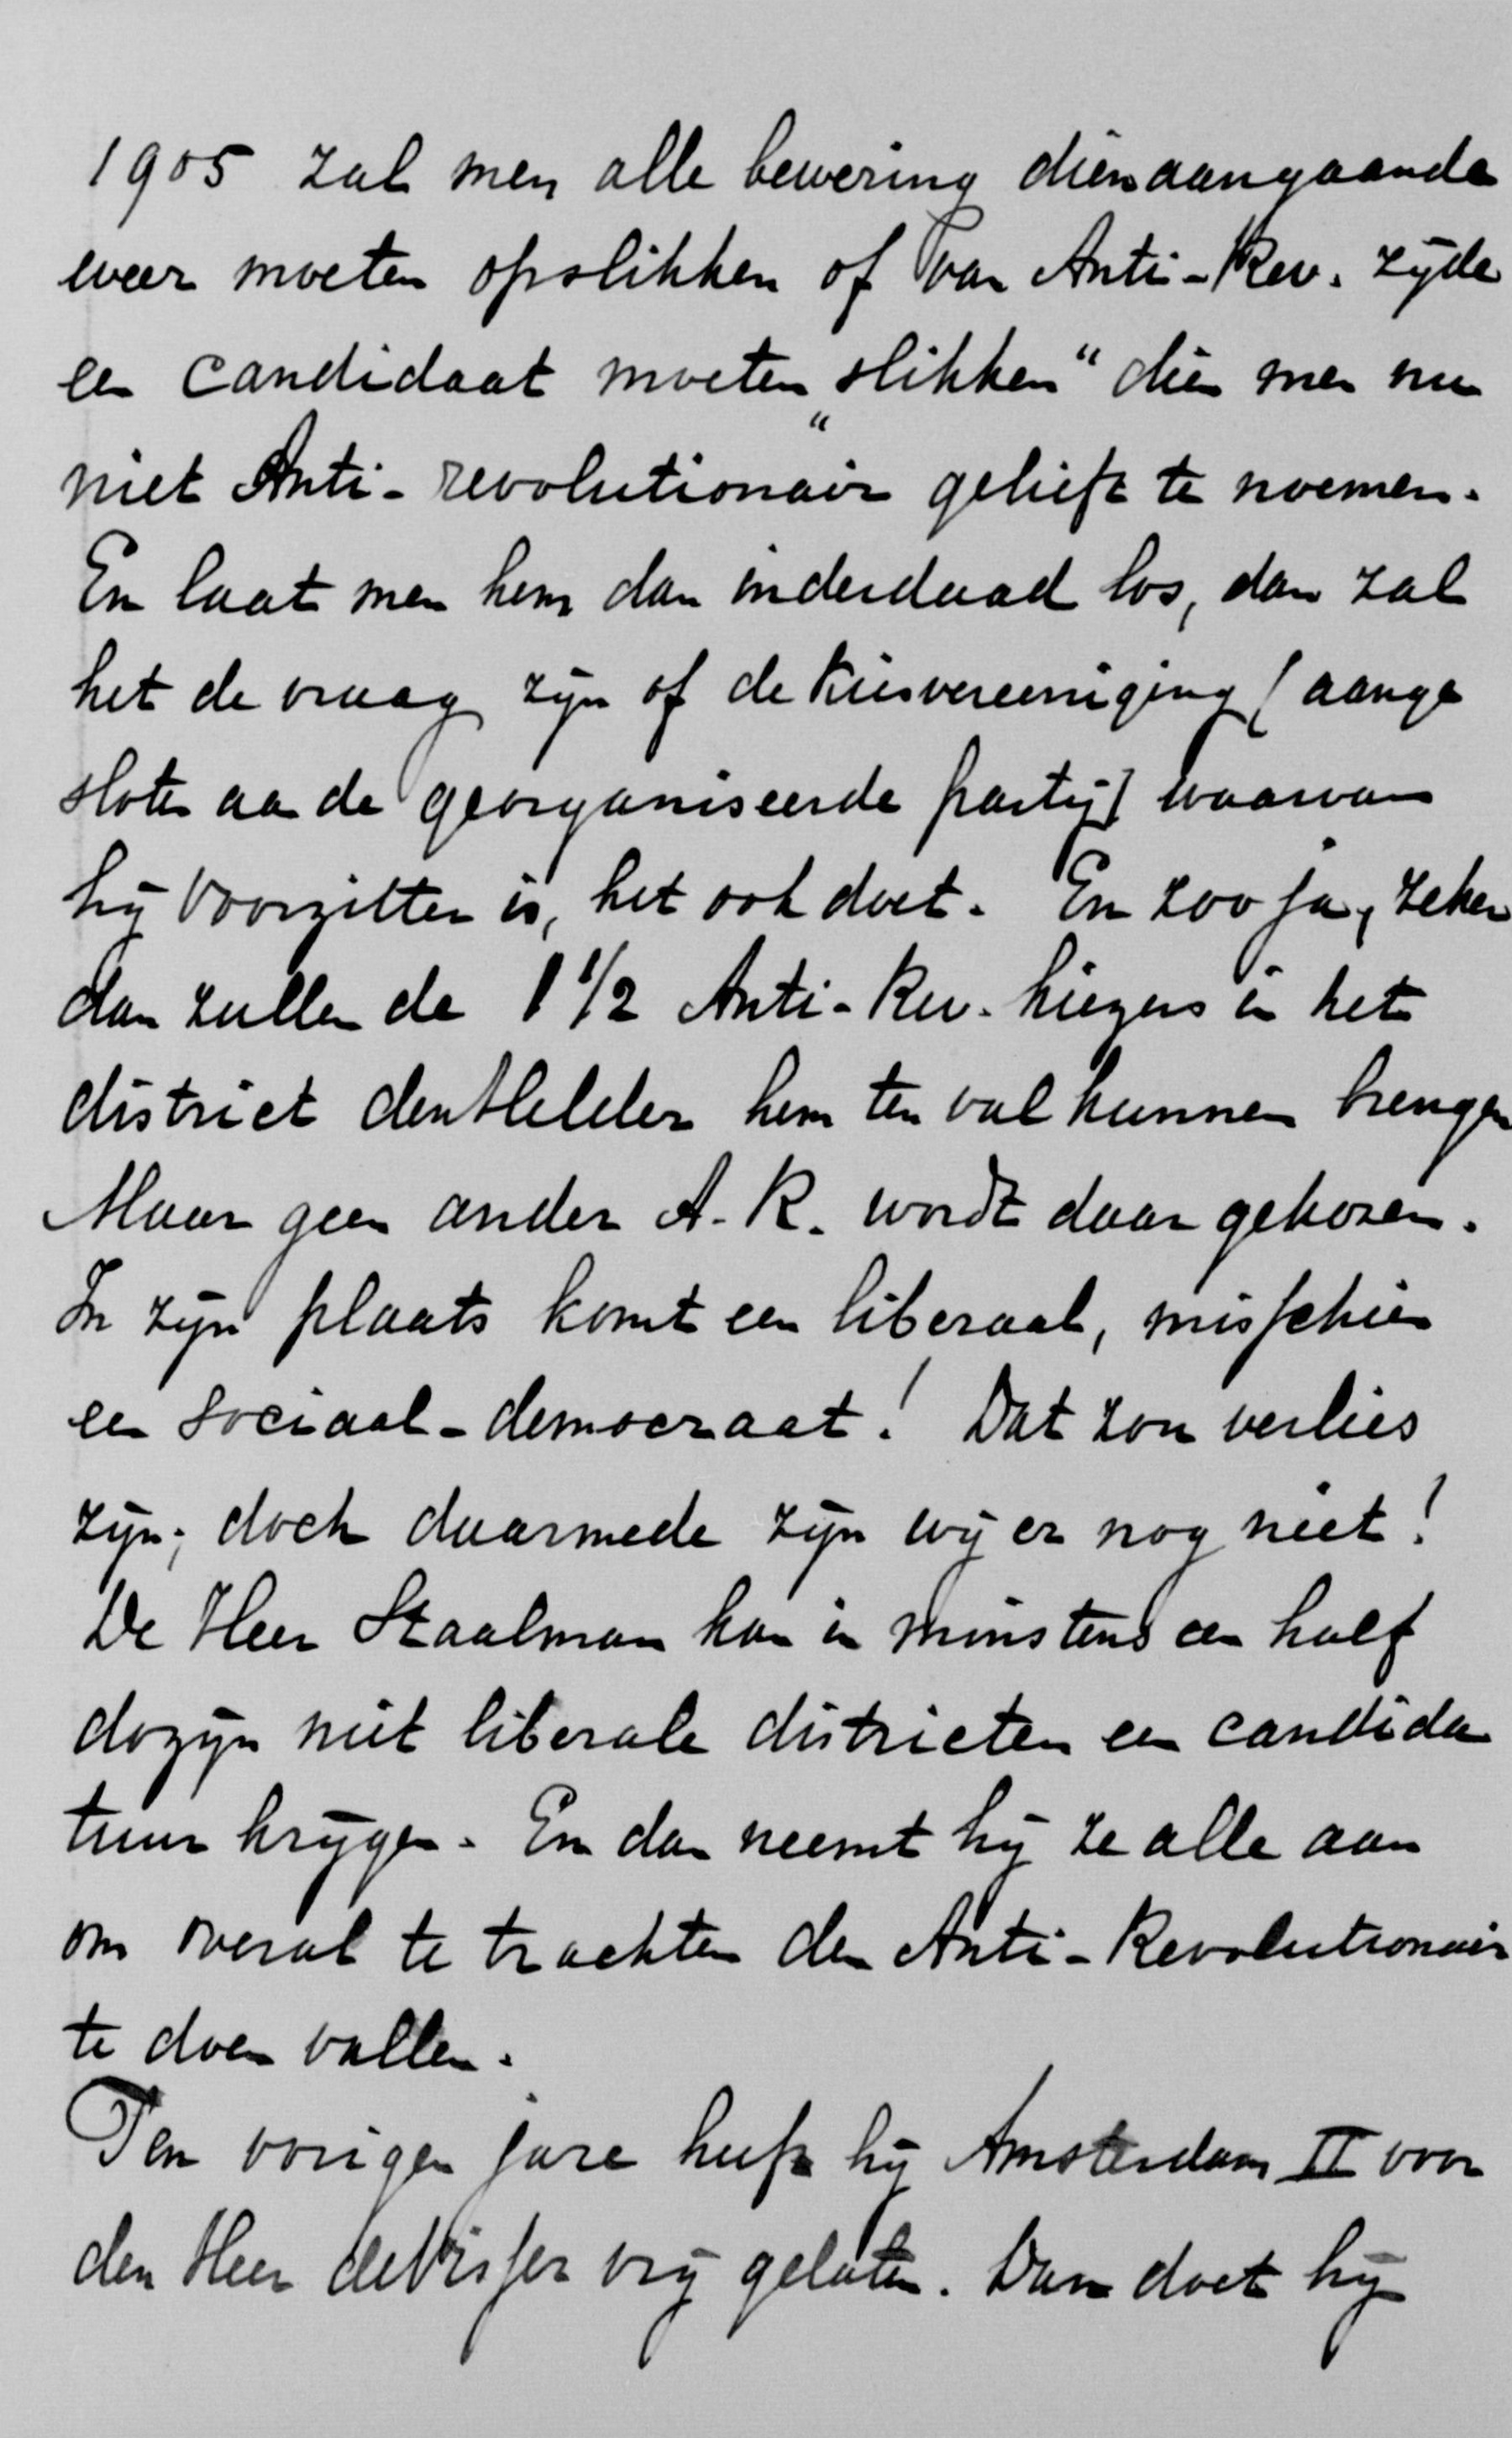 1905 zal men alle bewering dienaangaande
weer moeten opslikken of van Anti-Rev. zyde
een candidaat moeten „slikken“ dien men nu
niet Anti-revolutionair gelieft te noemen.
En laat men hem dan inderdaad los, dan zal
het de vraag zyn of de Kiesvereeniging (aange
sloten aan de georganiseerde partij) waarvan
hy Voorzitter is, het ook doet. En zoo ja, zeker
dan zullen de 1 1/2 Anti-Rev. kiezers in het
district den Helder hem ten val kunnen brengen
Maar geen ander A.R. wordt daar gekozen.
In zyn plaats komt een liberaal, misschien
een sociaal-democraat! Dat zou verlies
zyn; doch daarmede zyn wy er nog niet!
De Heer Staalman kan in minstens een half
dozyn niet liberale districten een candida
tuur krygen. En dan neemt hy ze alle aan
om overal te trachten den Anti-Revolutionair
te doen vallen.
Ten vorigen jare heeft hy Amsterdam II voor
den Heer de Visser vry gelaten. Dan doet hy